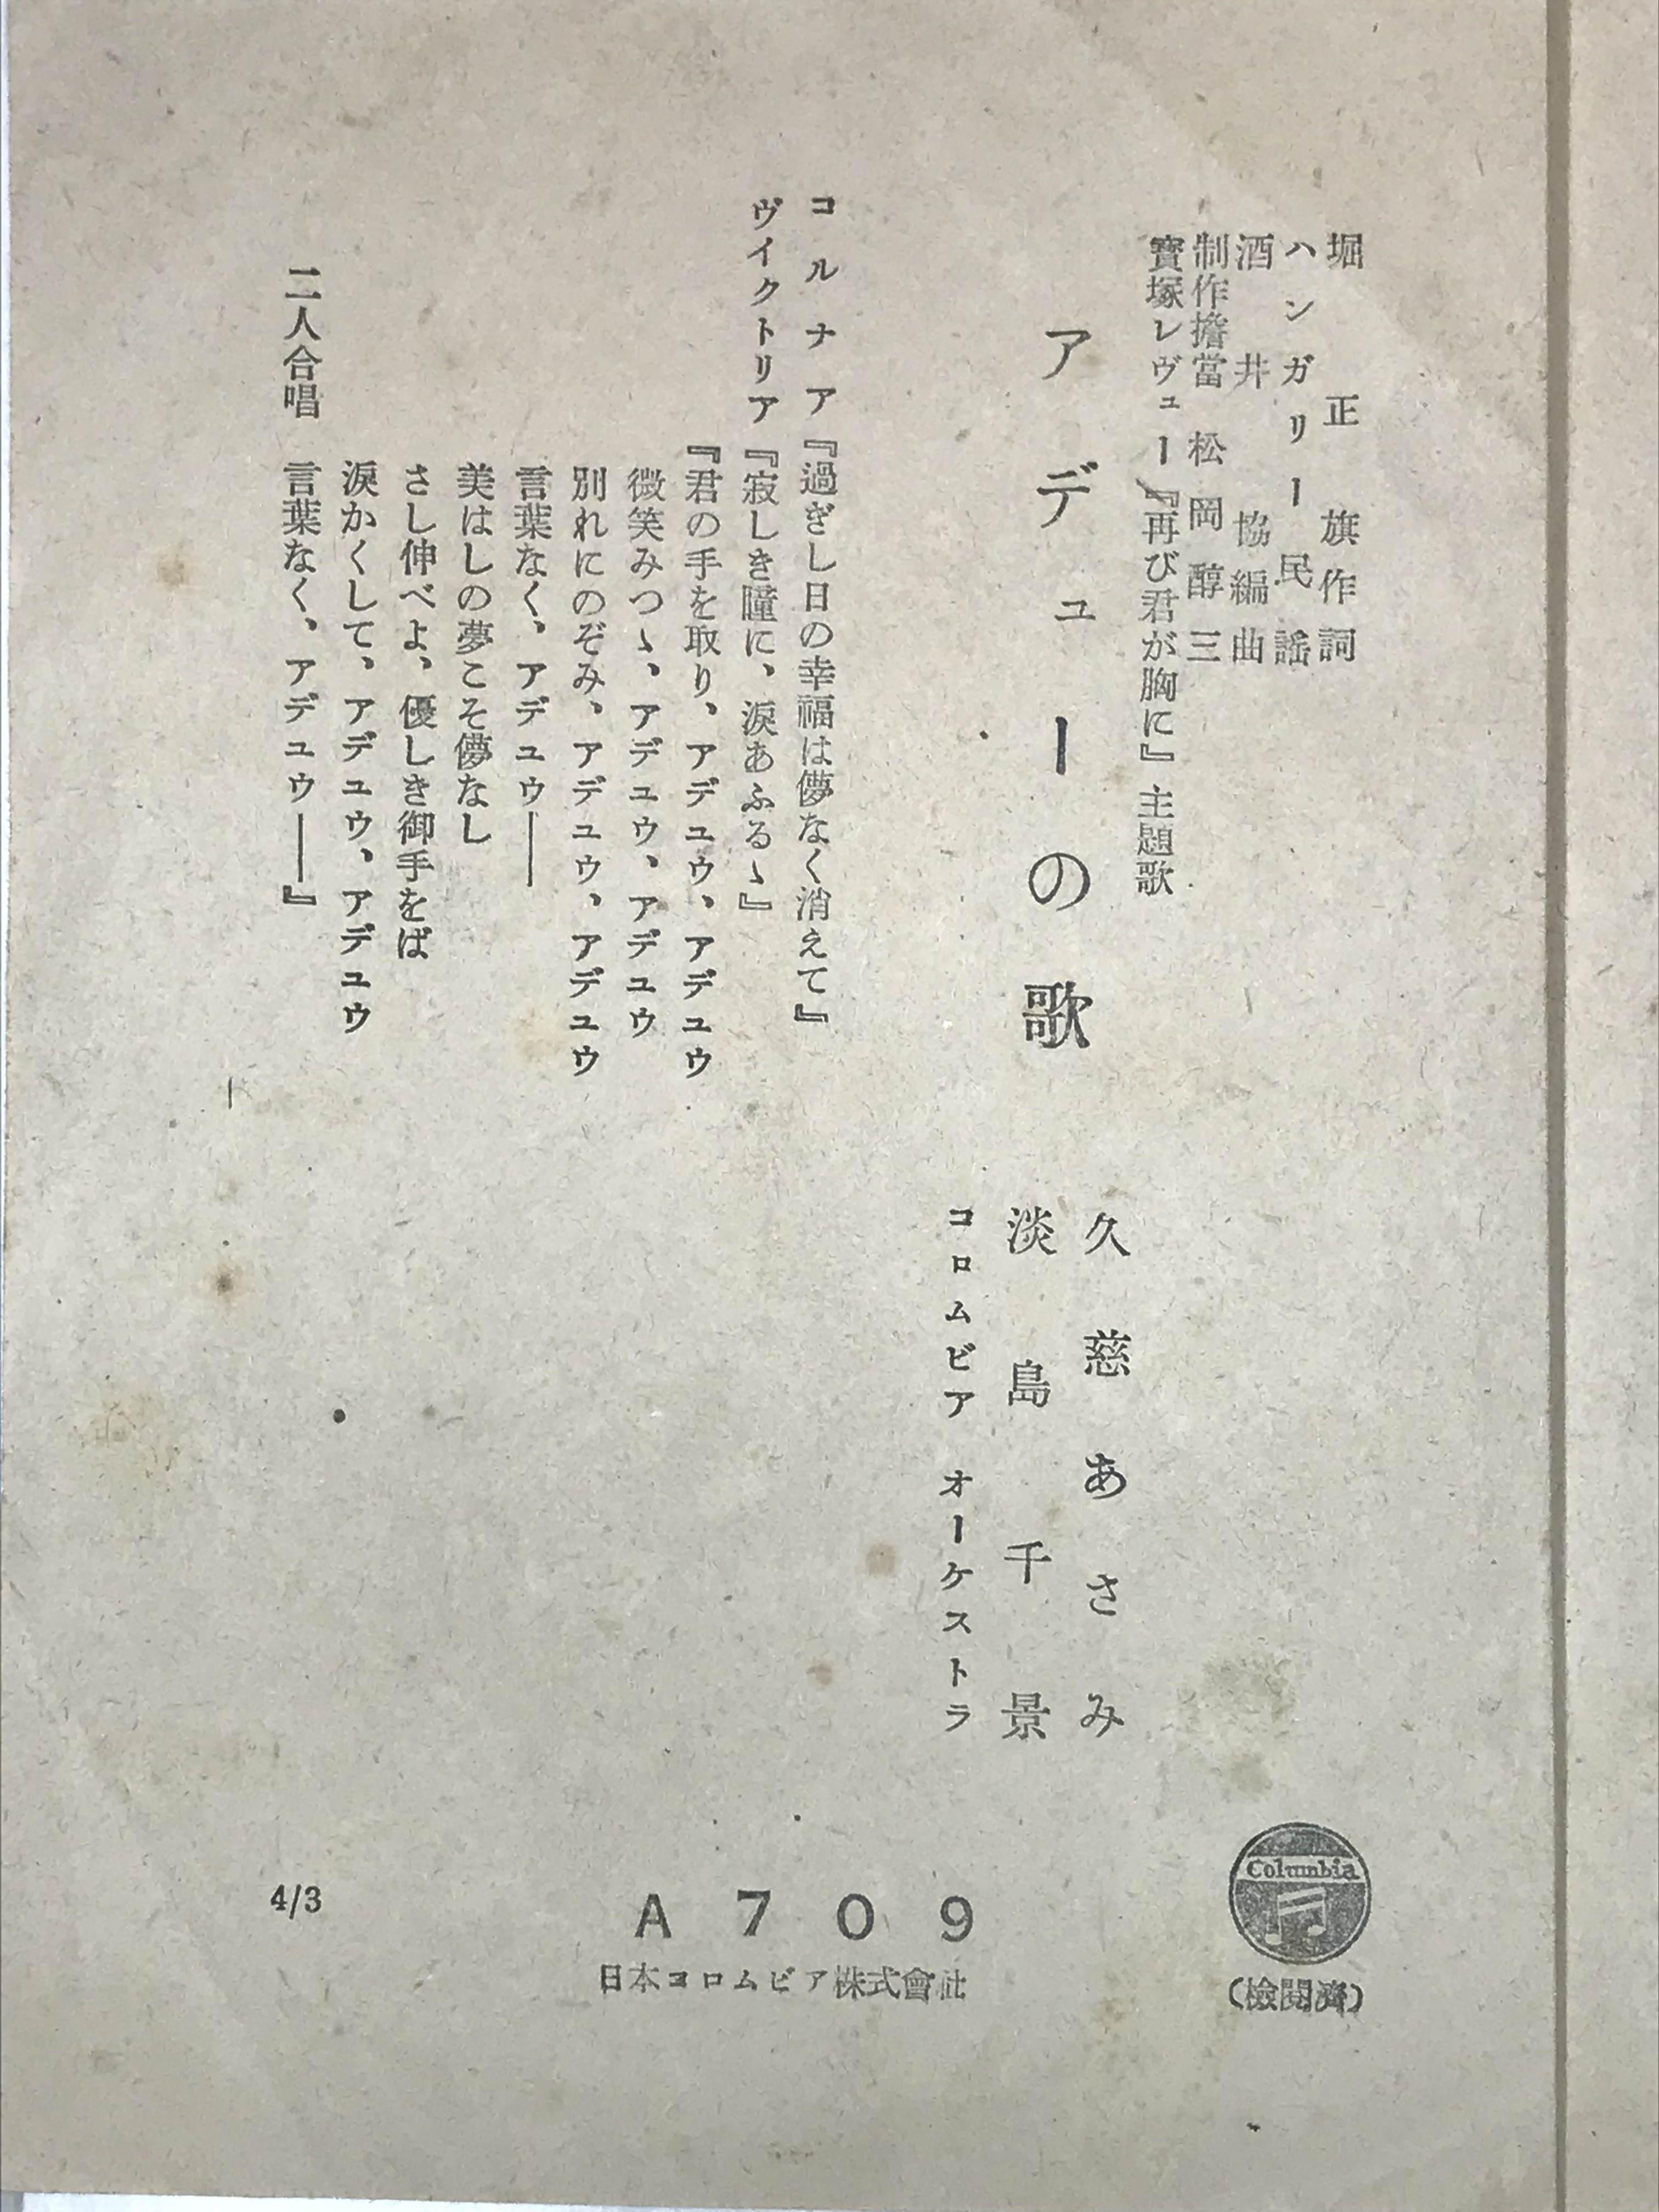 堀正旗作詞
ハンガリー民謡
酒井協編曲
制作擔當 松岡醇三
寶塚レヴュー『再び君が胸に』主題歌
アデューの歌
久慈あさみ
淡島千景
コロムビア オーケストラ
コルナア『過ぎし日の幸福は儚なく消えて』
ヴイクトリア『寂しき瞳に、涙あふるゝ』
『君の手を取り、アデュウ、アデュウ
微笑みつゝ、アデュウ、アデュウ
別れにのぞみ、アデュウ、アデュウ
言葉なく、アデュウ――
美はしの夢こそ儚なし
さし伸べよ、優しき御手をば
涙かくして、アデュウ、アデュウ
二人合唱 言葉なく、アデュウ――』
Columbia
(檢閲濟)
A709
日本コロムビア株式會社
4/3